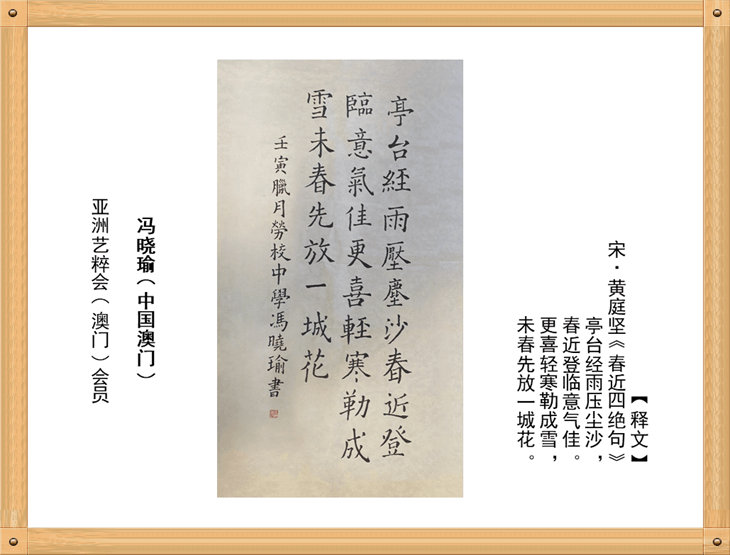 【释文】
宋·黄庭坚《春近四绝句》
亭台经雨压尘沙，
春近登临意气佳。
更喜轻寒勒成雪，
未春先放一城花。
亭台経雨壓塵沙春近登
臨意氣佳更喜輕寒勒成
雪未春先放一城花
壬寅臘月勞校中學馮曉瑜書
冯晓瑜（中国澳门）
亚洲艺粹会（澳门）会员